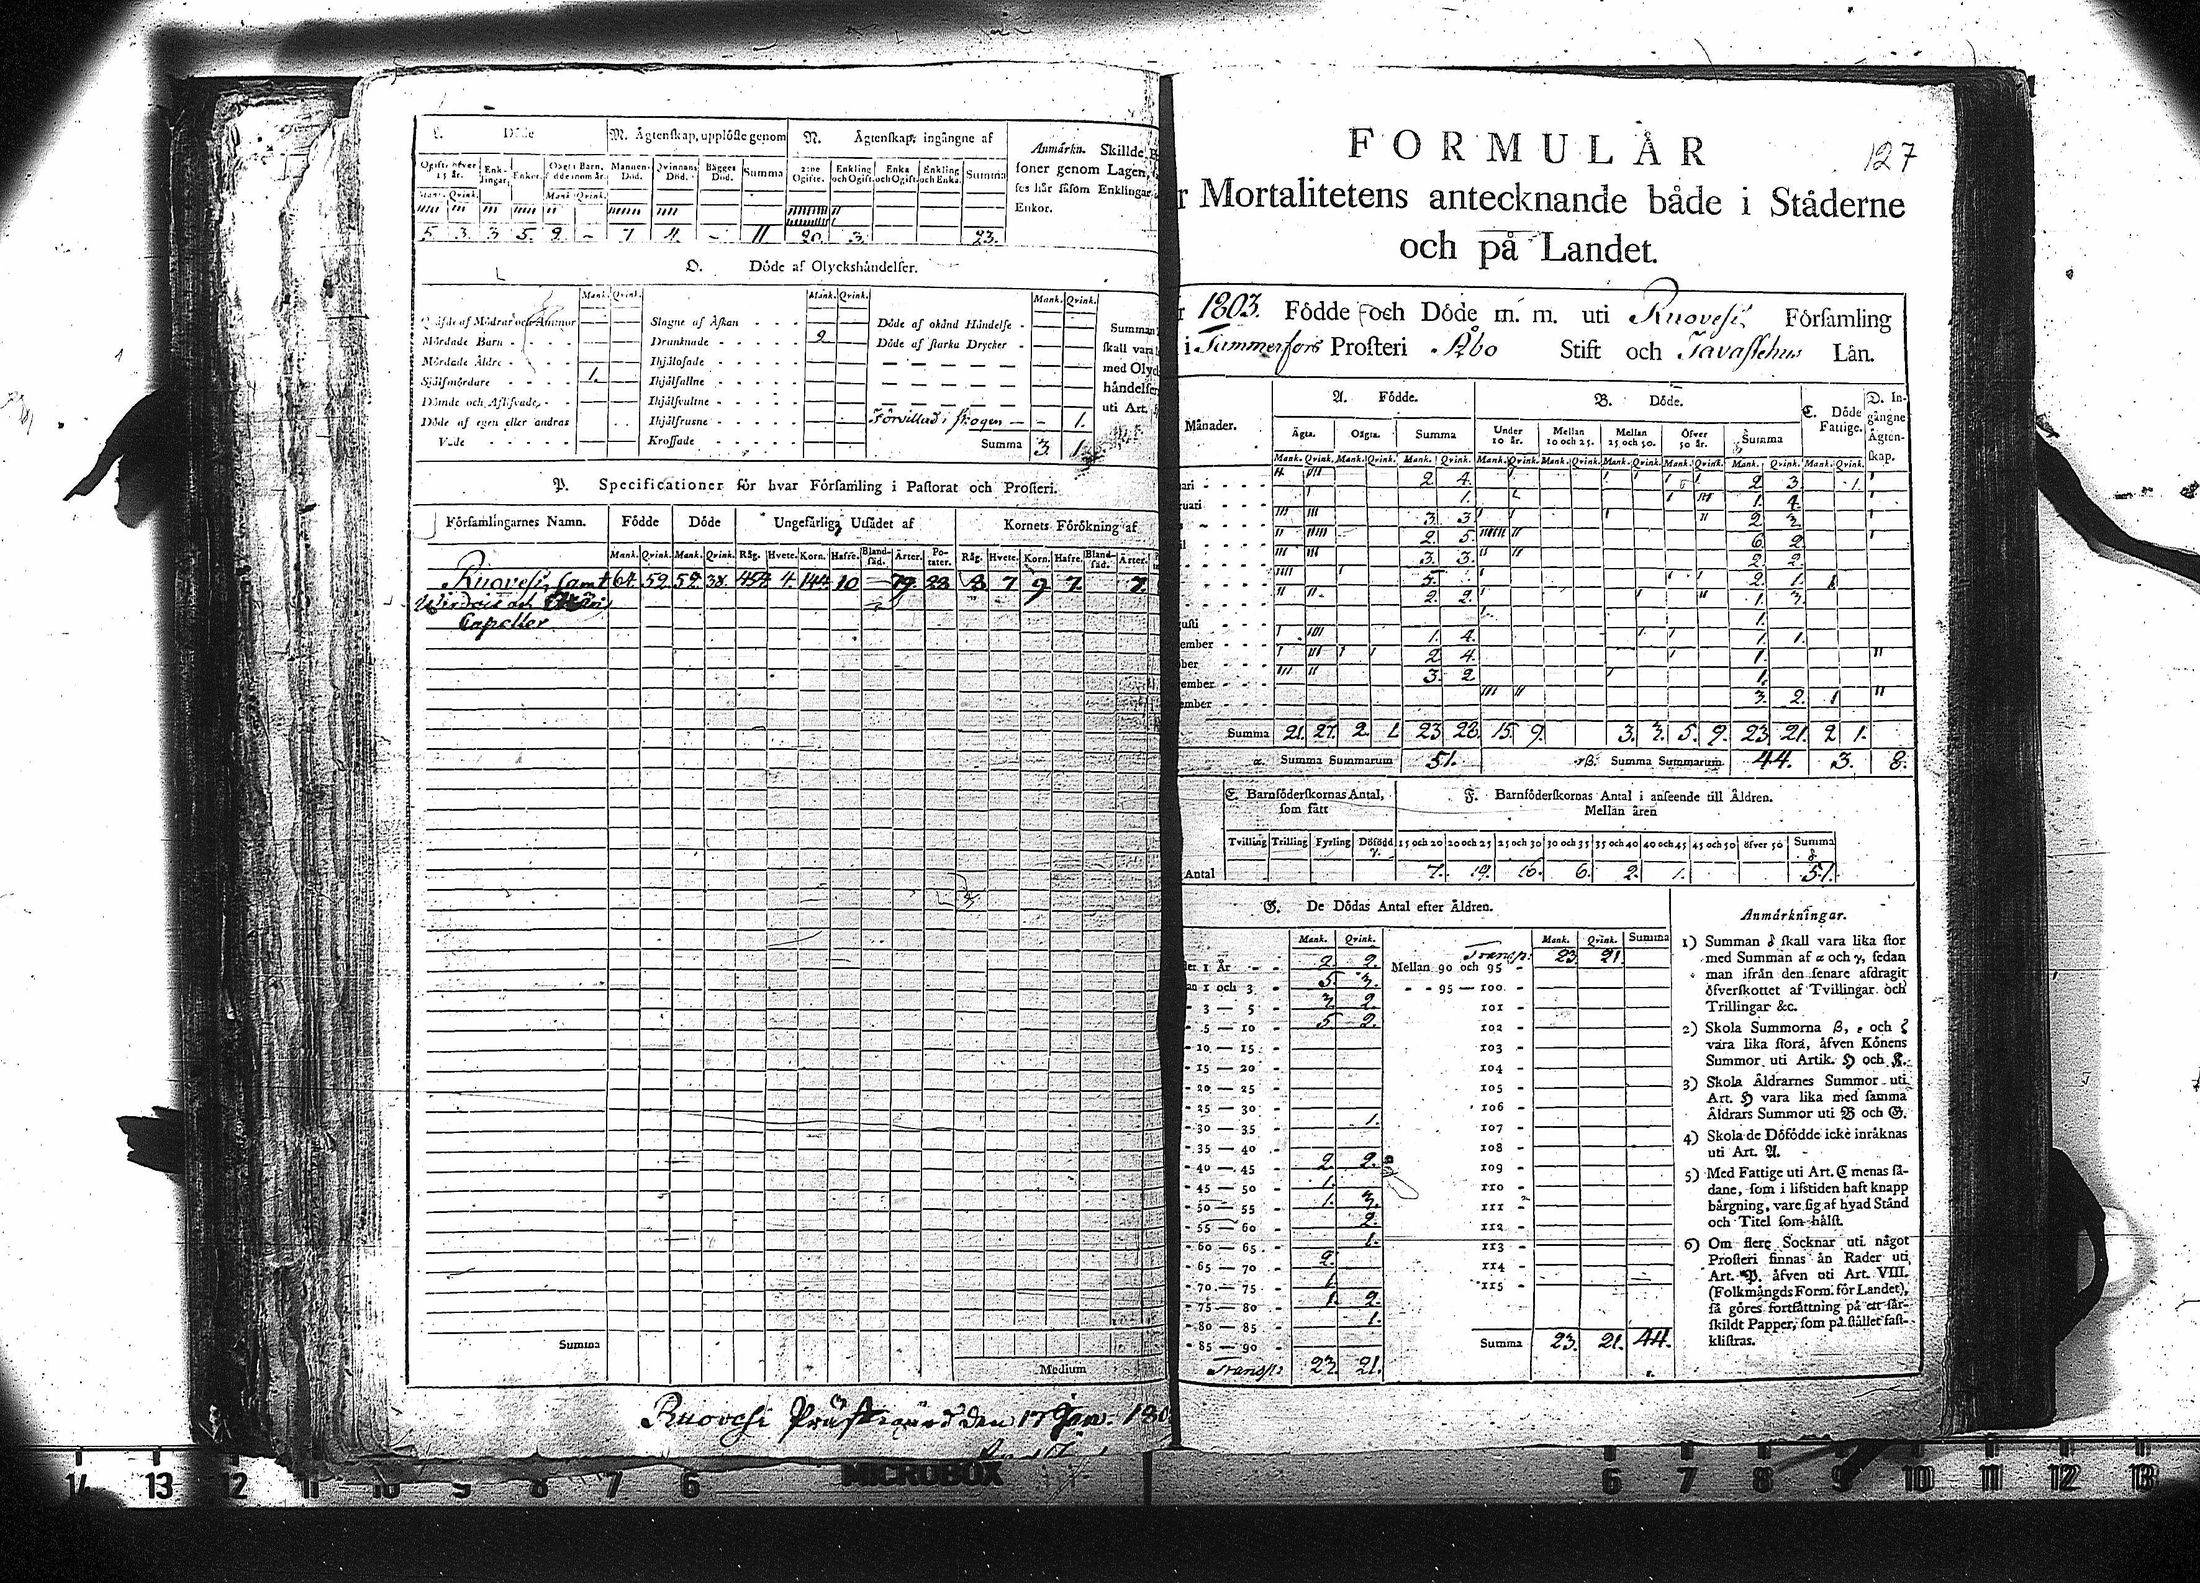 L. Döde
M. Ägtenskap, upplöste genom
N. Ägtenskap, ingångne af
Ogifte öfver 15 år. Enklingar. Enkor. Oägta Barn, födde inom år. Mannens Död. Qvinnans Död. Bägges Död. Summa 2:ne Ogifte. Enkling och Ogift. Enka och Ogift. Enkling och Enka. Summa
Mank. Qvink. Mank. Qvink.
5. 3. 3 5. 2. - 7 4. - 11 20. 3. 23.
Anmärkn. Skillde
soner genom Lagen,
ses här såsom Enklingar
Enkor.
O. Döde af Olyckshändelser.
Mank. Qvink. Mank. Qvink. Mank. Qvink.
Qväfde af Mödrar och Ammor
Mördade Barn
Mördade Äldre
Självmördare 1.
Dömde och Aflifvade
Döde af egen eller andras
Våde
Slagne af Åskan
Drunknade 2
Ihjälosade
Ihjälfallne
Ihjälsvultne
Ihjälfrusne
Krossade
Döde af okänd Händelse
Döde af starka Drycker
Förvillad i skogen - 1.
Summa 3. 1.
Summan
skall vara
med Olyck
händelser
uti Art.
P. Specificationer för hvar Församling i Pastorat och Prosteri.
Församlingarnes Namn. Födde Döde Ungefärliga Utsädet af Kornets Förökning af
Mank. Qvink. Mank. Qvink. Råg. Hvete. Korn. Hafre. Blandsäd. Ärter. Potater. Råg. Hvete. Korn. Hafre. Blandsäd. Ärter.
Ruovesi, samt 64. 52. 52. 38. 454. 4. 144. 10 - 79. 28 8. 7 9. 7. 7.
Wirdois och
Capeller
Summa
Medium
Ruovesi Prästegård den 17 Jan. 180
FORMULÄR
127
r Mortalitetens antecknande både i Städerne
och på Landet.
r 1803. Födde och Döde m. m. uti Ruovesi, Församling
i Tammerfors Prosteri Åbo Stift och Tavastehus Län.
Månader. A. Födde. B. Döde. C. Döde Fattige. D. Ingångne Ägtenskap.
Ägta. Oägta. Summa Under 10 år. Mellan 10 och 25. Mellan 25 och 50. Öfver 50 år. Summa
Mank. Qvink. Mank. Qvink. Mank. Qvink. Mank. Qvink. Mank. Qvink. Mank. Qvink. Mank. Qvink. Mank. Qvink. Mank. Qvink.
ari 2. 4. 2 3. 1.
ruari 1. 1. 4.
3. 3. 2 3.
il 2. 5. 6. 2.
3. 3. 2. 2.
5. 2. 1.
2. 2. 1. 3.
gusti 1.
tember 1. 4. 1. 1.
ber 2 4. 1.
ember 3. 2 1.
ember 3. 2. 1
Summa 21. 27. 2. 1. 23 28. 15. 9. 3. 3. 5. 9. 23 21. 2. 1.
α. Summa Summarum 51. β. Summa Summarum 44. 3. 8.
E. Barnföderskornas Antal, som fått
F. Barnföderskornas Antal i anseende till Åldren.
Mellan åren
Tvilling Trilling Fyrling Dödfödd γ. 15 och 20 20 och 25 25 och 30 30 och 35 35 och 40 40 och 45 45 och 50 öfver 50 Summa δ
Antal 7. 19. 16. 6. 2. 1. 51.
G. De Dödas Antal efter Åldren.
Mank. Qvink. Mank. Qvink. Summa
Transp. 23 21.
der 1 År 2. 2. Mellan 90 och 95
an 1 och 3 5. 3. 95 — 100
3 — 5 3. 2. 101
5 — 10 5 2. 102
10 — 15 103
15 — 20 104
20 — 25 105
25 — 30 106
30 — 35 1. 107
35 — 40 108
40 — 45 2. 2. 109
45 — 50 1. 110
50 — 55 1. 3. 111
55 — 60 2. 112
60 — 65 1. 113
65 — 70 2. 114
70 — 75 1. 115
75 — 80 1. 2.
80 — 85 1.
85 — 90 Summa 23. 21. 44.
Transp: 23. 21.
Anmärkningar.
1) Summan δ skall vara lika stor
med Summan af α och γ, sedan
man ifrån den senare afdragit
öfverskottet af Tvillingar och
Trillingar &c.
2) Skola Summorna β, ε och ζ
vara lika stora, äfven Könens
Summor uti Artik. H och K.
3) Skola Åldrarnes Summor uti
Art. H vara lika med samma
Åldrars Summor uti B och G.
4) Skola de Döfödde icke inräknas
uti Art. A.
5) Med Fattige uti Art. C menas sådane,
som i lifstiden haft knapp
bärgning, vare sig af hvad Stånd
och Titel som hälst.
6) Om flere Socknar uti något
Prosteri finnas än Rader uti
Art. P. äfven uti Art. VIII.
(Folkmängds Form. för Landet),
så göres fortsättning på ett särskildt
Papper, som på stället fastklistras.
14 13 12 11 10 9 8 7 6 MICROBOX 6 7 8 9 10 11 12 13